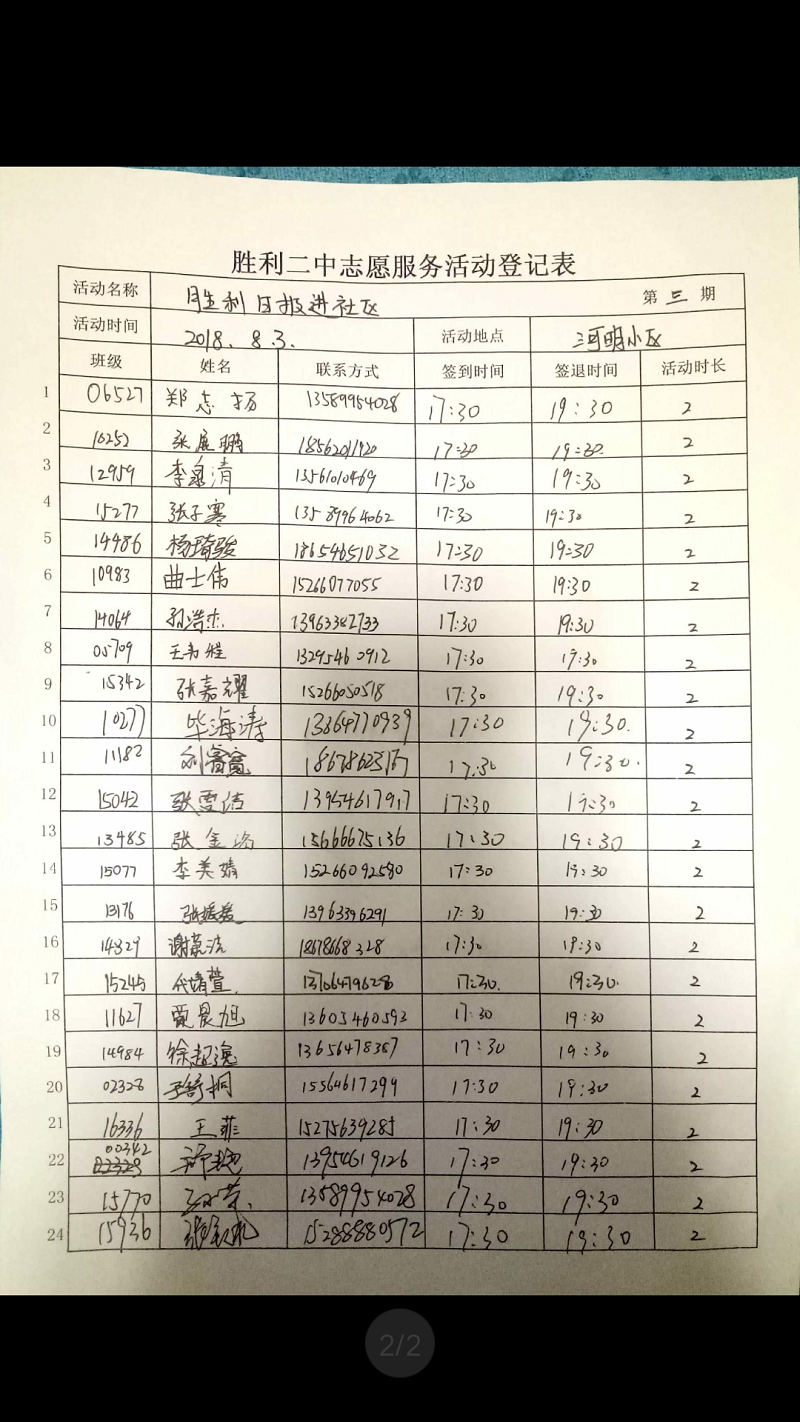 胜利二中志愿服务活动登记表
活动名称 胜利日报进社区 第三期
活动时间 2018.8.3. 活动地点 河明小区
班级 姓名 联系方式 签到时间 签退时间 活动时长
1 06527 郑志扬 13589954028 17:30 19:30 2
2 16252 张展鹏 18562011920 17:30 19:30 2
3 12959 李泉清 13561010469 17:30 19:30 2
4 15277 张子寒 13589964062 17:30 19:30 2
5 14986 杨琦骏 18654651032 17:30 19:30 2
6 10983 曲士伟 15266077055 17:30 19:30 2
7 14064 孙浩杰 13963342733 17:30 19:30 2
8 05709 王 13295460912 17:30 19:30 2
9 15342 张嘉耀 15266050518 17:30 19:30 2
10 10277 毕海涛 13864770939 17:30 19:30. 2
11 11182 刘 17:30 19:30. 2
12 15042 张雪洁 13954617917 17:30 19:30 2
13 13485 张金 15666675136 17:30 19:30 2
14 15077 李美婧 15266092580 17:30 19:30 2
15 13176 张媛媛 13963396291 17:30 19:30 2
16 14329 谢 18678668328 17:30 19:30 2
17 15245 代靖萱. 13706479628 17:30. 19:30. 2
18 11627 贾晨旭 13605460592 17:30 19:30 2
19 14984 徐超逸 13656478387 17:30 19:30 2
20 02328 桐 15564617299 17:30 19:30 2
21 16336 王菲 15275639285 17:30 19:30 2
22 00342 13954619126 17:30 19:30 2
23 15770 13589954028 17:30 19:30 2
24 15936 张 15288880572 17:30 19:30 2
2/2